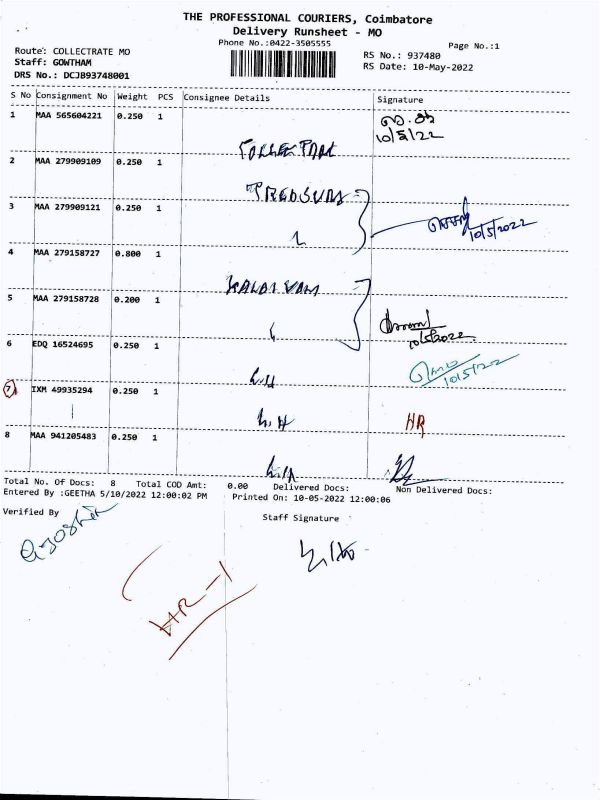 THE PROFESSIONAL COURIERS, Coimbatore
Delivery Runsheet - MO
Phone No.:0422-3505555
Page No.:1
Route: COLLECTRATE MO
RS No.: 937480
Staff: GOWTHAM
RS Date: 10-May-2022
DRS No.: DCJB93748001
S No Consignment No Weight PCS Consignee Details Signature
1 MAA 565604221 0.250 1
10/5/22
2 MAA 279909109 0.250 1
3 MAA 279909121 0.250 1
10/5/2022
4 MAA 279158727 0.800 1
5 MAA 279158728 0.200 1
10/5/2022
6 EDQ 16524695 0.250 1
10/5/22
7 IXM 49935294 0.250 1
HR
8 MAA 941205483 0.250 1
Total No. Of Docs: 8 Total COD Amt: 0.00 Delivered Docs: Non Delivered Docs:
Entered By :GEETHA 5/10/2022 12:00:02 PM Printed On: 10-05-2022 12:00:06
Verified By
Staff Signature
HR-1